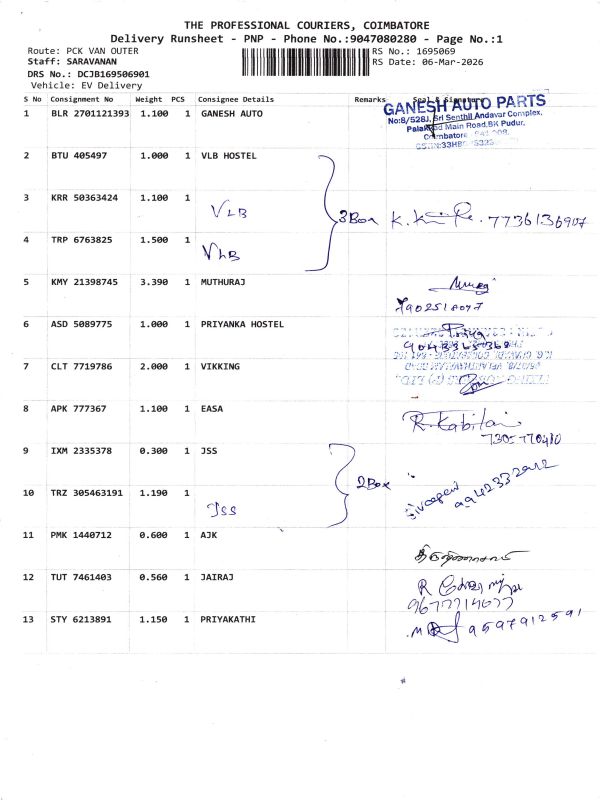 THE PROFESSIONAL COURIERS, COIMBATORE
Delivery Runsheet - PNP - Phone No.:9047080280 - Page No.:1
Route: PCK VAN OUTER RS No.: 1695069
Staff: SARAVANAN RS Date: 06-Mar-2026
DRS No.: DCJB169506901
Vehicle: EV Delivery
S No Consignment No Weight PCS Consignee Details Remarks Seal & Signature
1 BLR 2701121393 1.100 1 GANESH AUTO
GANESH AUTO PARTS
No:8/528J, Sri Senthil Andavar Complex,
Main Road, BK Pudur,
2 BTU 405497 1.000 1 VLB HOSTEL
3 KRR 50363424 1.100 1
VLB 3Box 7736136907
4 TRP 6763825 1.500 1
VLB
5 KMY 21398745 3.390 1 MUTHURAJ
6 ASD 5089775 1.000 1 PRIYANKA HOSTEL
7 CLT 7719786 2.000 1 VIKKING
8 APK 777367 1.100 1 EASA
R. Kabilan
9 IXM 2335378 0.300 1 JSS
2Box
10 TRZ 305463191 1.190 1
JSS
11 PMK 1440712 0.600 1 AJK
12 TUT 7461403 0.560 1 JAIRAJ
13 STY 6213891 1.150 1 PRIYAKATHI
9597912591